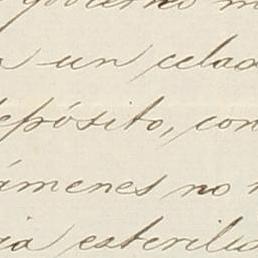 gobierno m
a un celad
depósito, con
ámenes no
ia esterilid